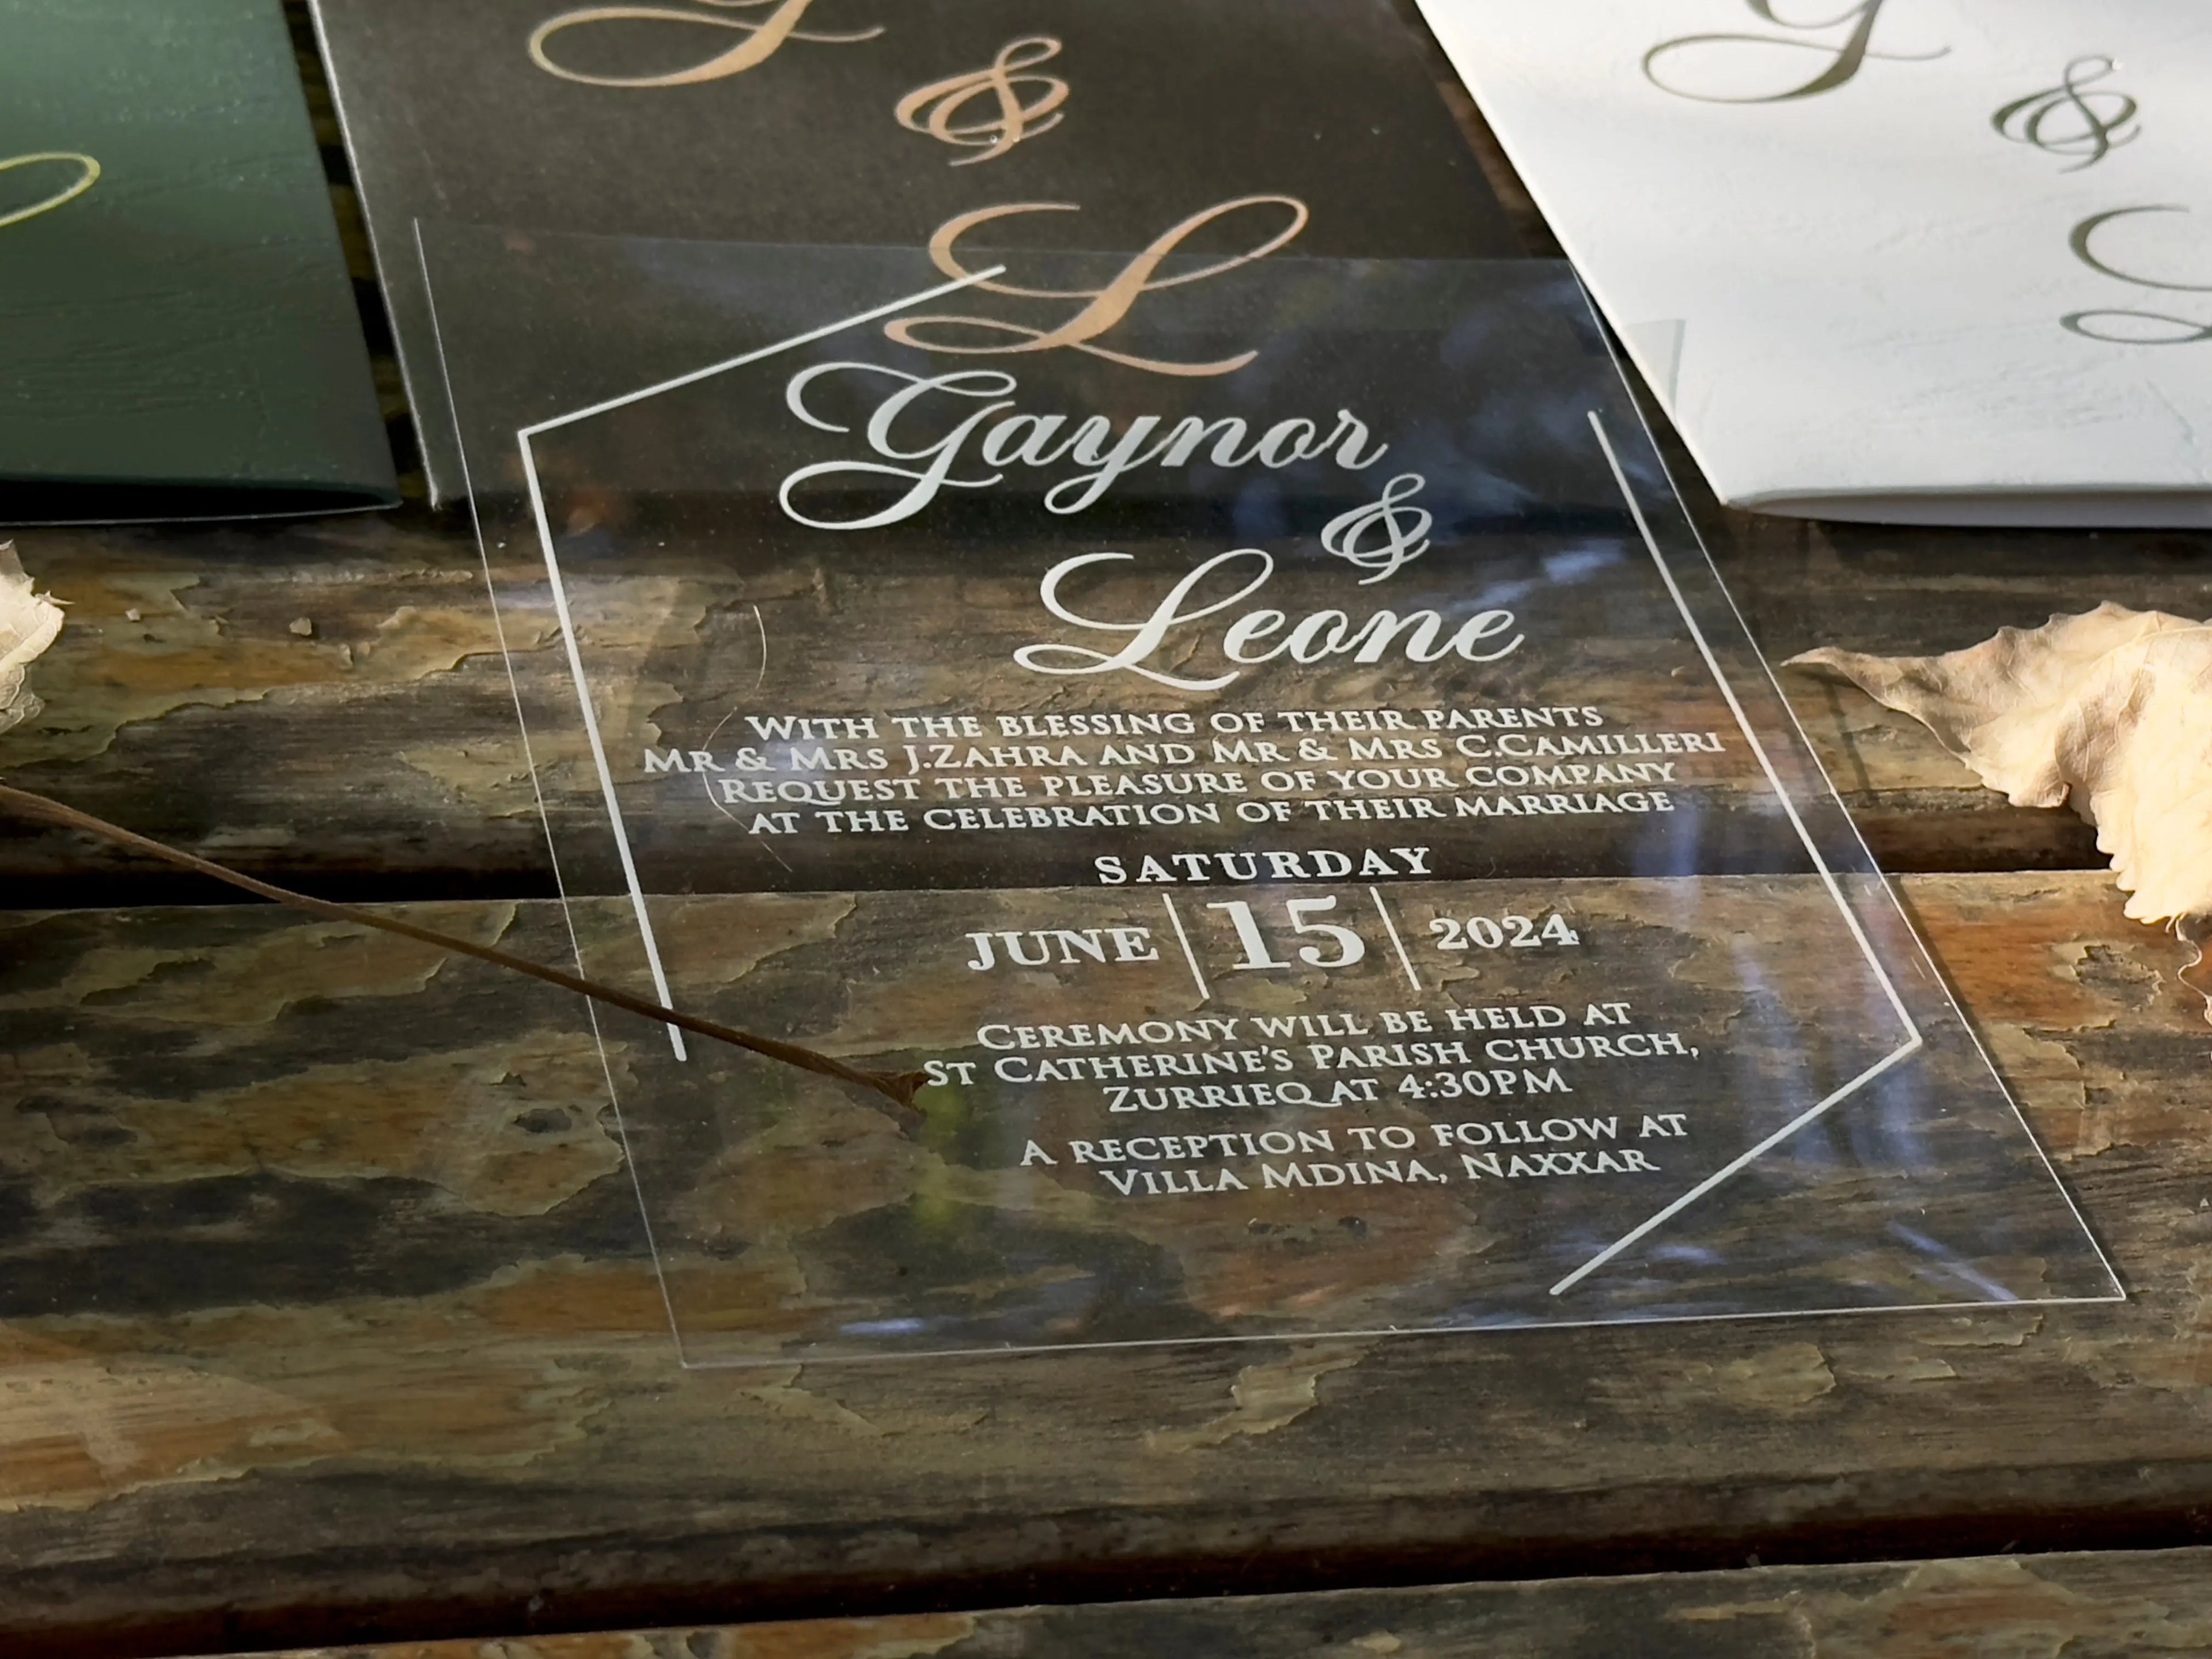 G
&
L
G
&
L
Gaynor
&
Leone
WITH THE BLESSING OF THEIR PARENTS
MR & MRS J.ZAHRA AND MR & MRS C.CAMILLERI
REQUEST THE PLEASURE OF YOUR COMPANY
AT THE CELEBRATION OF THEIR MARRIAGE
SATURDAY
JUNE 15 2024
CEREMONY WILL BE HELD AT
ST CATHERINE'S PARISH CHURCH,
ZURRIEQ AT 4:30PM
A RECEPTION TO FOLLOW AT
VILLA MDINA, NAXXAR